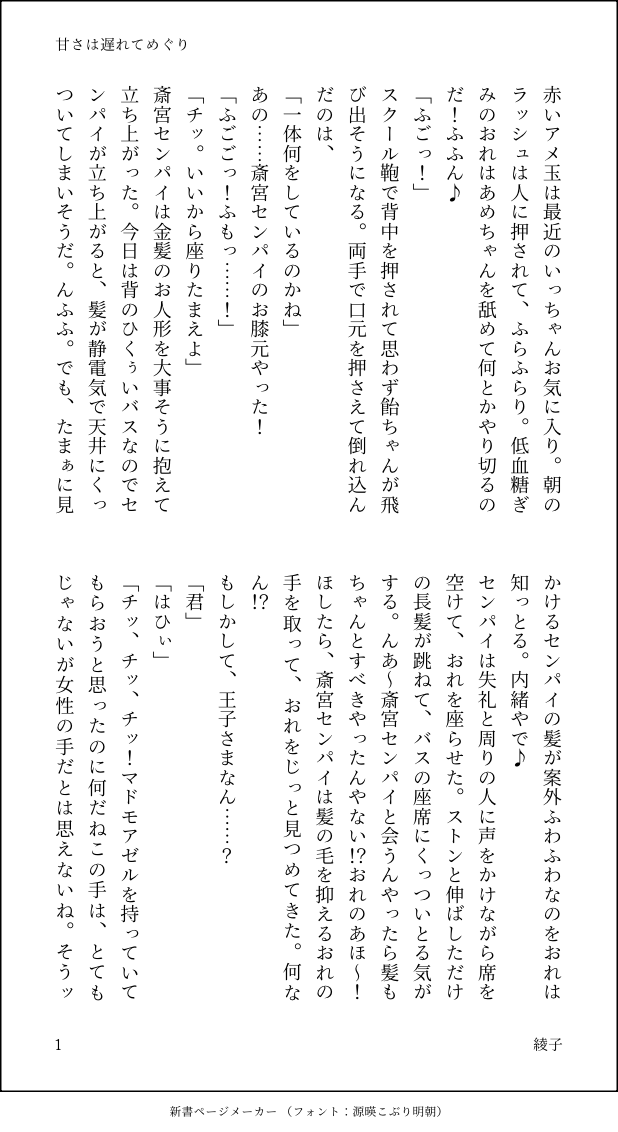 甘さは遅れてめぐり
赤いアメ玉は最近のいっちゃんお気に入り。朝の
ラッシュは人に押されて、ふらふらり。低血糖ぎ
みのおれはあめちゃんを舐めて何とかやり切るの
だ！ふふん♪
「ふごっ！」
スクール鞄で背中を押されて思わず飴ちゃんが飛
び出そうになる。両手で口元を押さえて倒れ込ん
だのは、
「一体何をしているのかね」
あの……斎宮センパイのお膝元やった！
「ふごごっ！ふもっ……！」
「チッ。いいから座りたまえよ」
斎宮センパイは金髪のお人形を大事そうに抱えて
立ち上がった。今日は背のひくぅいバスなのでセ
ンパイが立ち上がると、髪が静電気で天井にくっ
ついてしまいそうだ。んふふ。でも、たまぁに見
かけるセンパイの髪が案外ふわふわなのをおれは
知っとる。内緒やで♪
センパイは失礼と周りの人に声をかけながら席を
空けて、おれを座らせた。ストンと伸ばしただけ
の長髪が跳ねて、バスの座席にくっついとる気が
する。んあ〜斎宮センパイと会うんやったら髪も
ちゃんとすべきやったんやない!?おれのあほ〜！
ほしたら、斎宮センパイは髪の毛を抑えるおれの
手を取って、おれをじっと見つめてきた。何な
ん!?
もしかして、王子さまなん……？
「君」
「はひぃ」
「チッ、チッ、チッ！マドモアゼルを持っていて
もらおうと思ったのに何だねこの手は、とても
じゃないが女性の手だとは思えないね。そうッ
1
綾子
新書ページメーカー（フォント：源暎こぶり明朝）